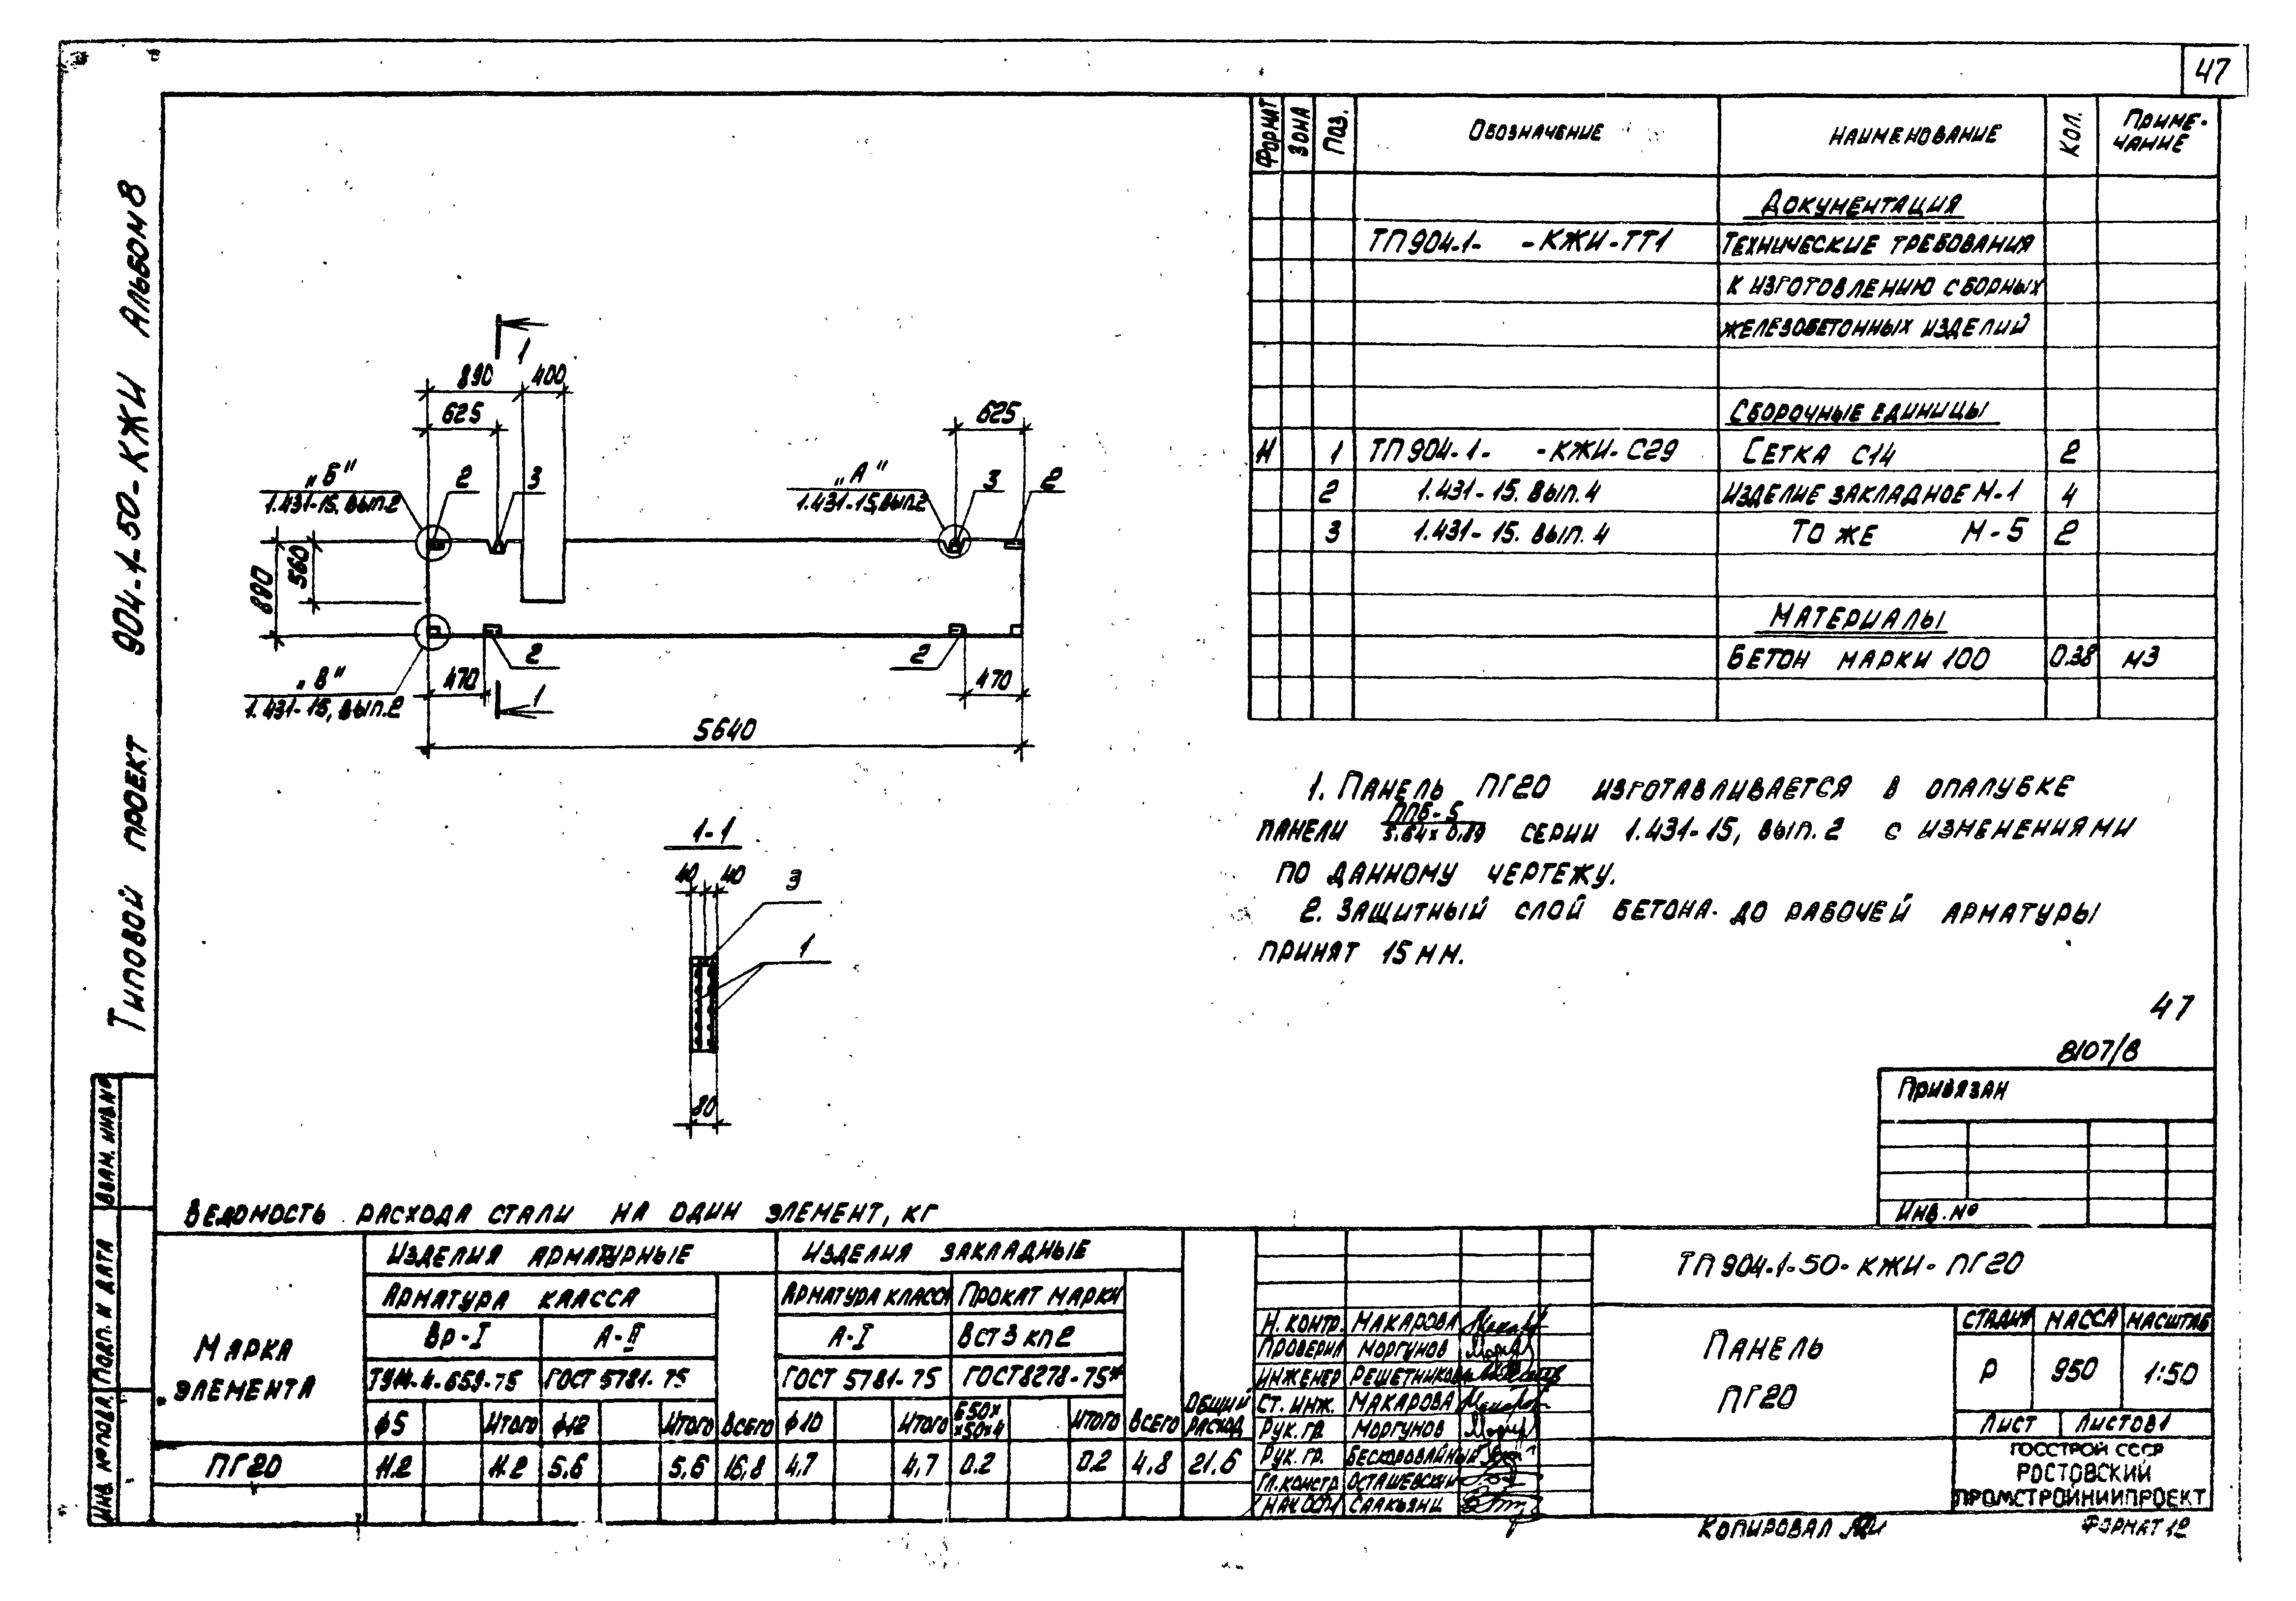 47
Типовой проект 904-1-50-КЖИ Альбом 8
Формат Зона Поз. Обозначение Наименование Кол. Приме-
чание
Документация
ТП 904-1- -КЖИ-ТТ1 Технические требования
к изготовлению сборных
железобетонных изделий
Сборочные единицы
И 1 ТП 904-1- -КЖИ-С29 Сетка С14 2
2 1.431-15. вып. 4 Изделие закладное М-1 4
3 1.431-15. вып. 4 То же М-5 2
Материалы
Бетон марки 100 0.38 м3
1
890 400
625 625
„Б" 2 3 „А" 3 2
1.431-15, вып.2 1.431-15, вып.2
890 560
2 2
„В" 470 1 470
1.431-15, вып.2
5640
1-1
40 40 3
1
80
1. Панель ПГ20 изготавливается в опалубке
панели ППБ-5
5.64х0.89 серии 1.431-15, вып. 2 с изменениями
по данному чертежу.
2. Защитный слой бетона до рабочей арматуры
принят 15 мм.
47
8107/8
Привязан
Инв. №
Взам. инв.№
Подп. и дата
Инв. № подл.
Ведомость расхода стали на один элемент, кг
Марка
элемента
Изделия арматурные Изделия закладные
Арматура класса Арматура класса Прокат марки
Вр-I А-II А-I Вст3кп2
ТУ14-4-659-75 ГОСТ 5781-75 ГОСТ 5781-75 ГОСТ8278-75*
Общий
расход
ф5 Итого ф12 Итого Всего ф10 Итого Б50х
х50х4 Итого Всего
ПГ20 11.2 11.2 5,6 5,6 16,8 4,7 4,7 0.2 0.2 4,8 21,6
Н. контр. Макарова
Проверил Моргунов
Инженер Решетникова
Ст. инж. Макарова
Рук. гр. Моргунов
Рук. гр. Бескоровайный
Гл. констр Осташевский
Нач ОСП Саакьянц
ТП 904-1-50-КЖИ-ПГ20
Панель
ПГ20
Стадия Масса Масштаб
Р 950 1:50
Лист Листов 1
Госстрой СССР
Ростовский
Промстройниипроект
Копировал
Формат 12